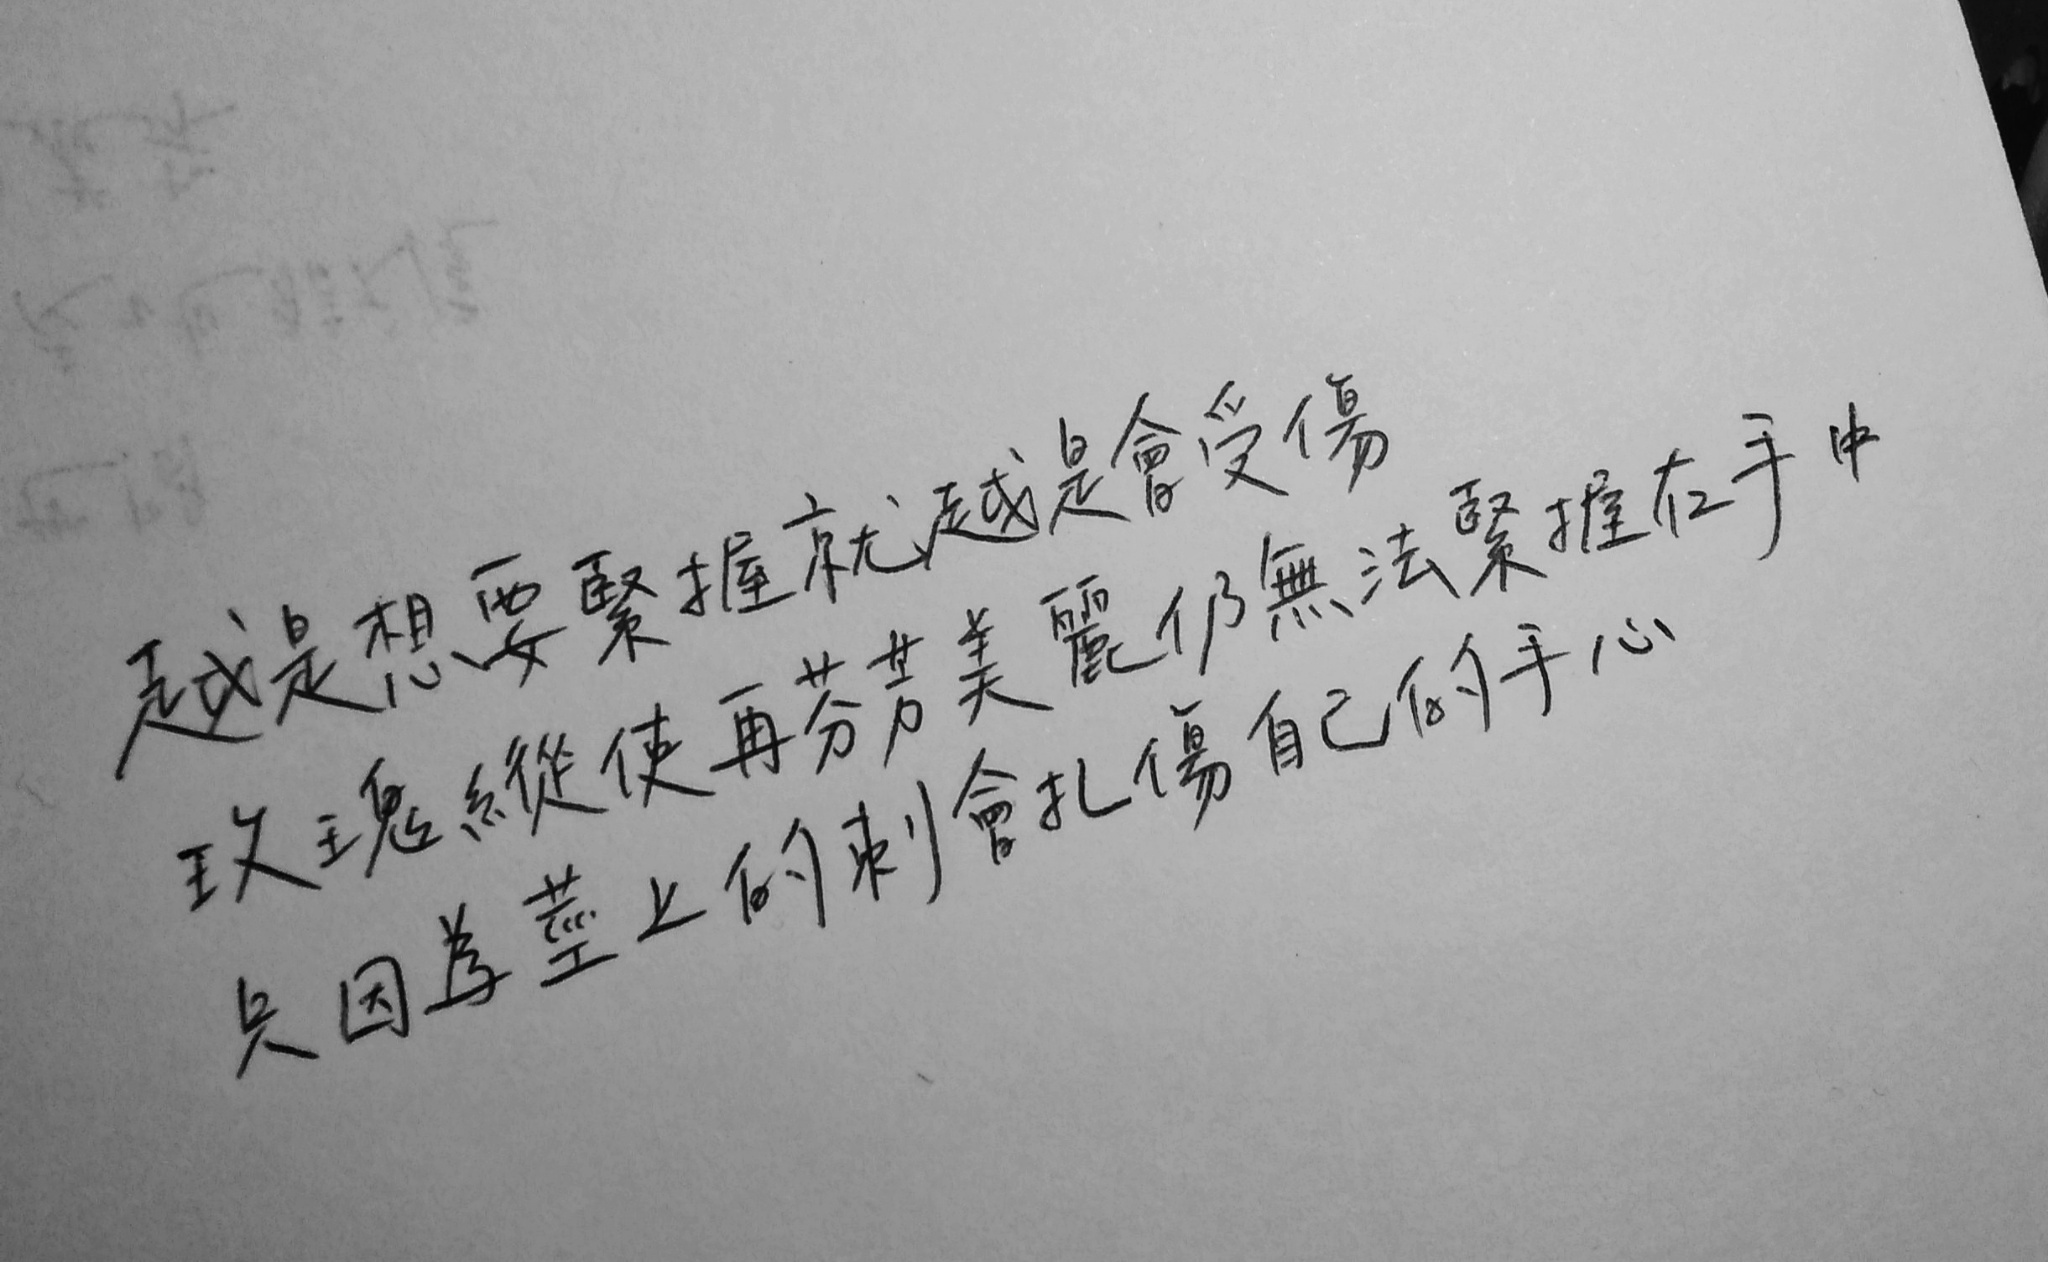 越是想要緊握就越是會受傷
玫瑰縱使再芬芳美麗仍無法緊握在手中
只因為莖上的刺會扎傷自己的手心